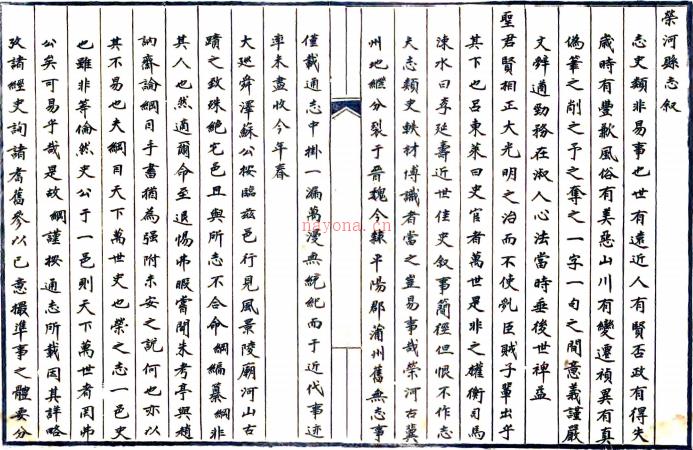 榮河縣志叙
志史類非易事也世有遠近人有賢否政有得失
歲時有豐歉風俗有美惡山川有變遷禎異有真
偽筆之削之予之奪之一字一句之間意義謹嚴
文辭遒勁務在淑人心法當時垂後世裨益
聖君賢相正大光明之治而不使亂臣賊子輩出乎
其下也呂東萊曰史官者萬世是非之權衡司馬
涑水曰李延壽近世佳史叙事簡徑但恨不作志
夫志類史軼材博識者當之豈易事哉榮河古冀
州地繼分裂于晉魏今隸平陽郡蒲州舊無志事
僅載通志中掛一漏萬漫無統紀而于近代事迹
率未盡收今年春
大廵舜澤蘇公按臨茲邑行見風景陵廟河山古
蹟之致殊絶宅邑且與所志不合命綱編纂綱非
其人也然適爾命至退惕弗暇嘗聞朱考亭與趙
訥齋論綱目手書猶為強附未安之説何也亦以
其不易也夫綱目天下萬世史也榮之志一邑史
也雖非等倫然史公于一邑則天下萬世者罔弗
公矣可易乎哉是故綱謹按通志所載因其詳略
攷諸經史詢諸耆舊參以己意撮準事之體要分
nayona.cn